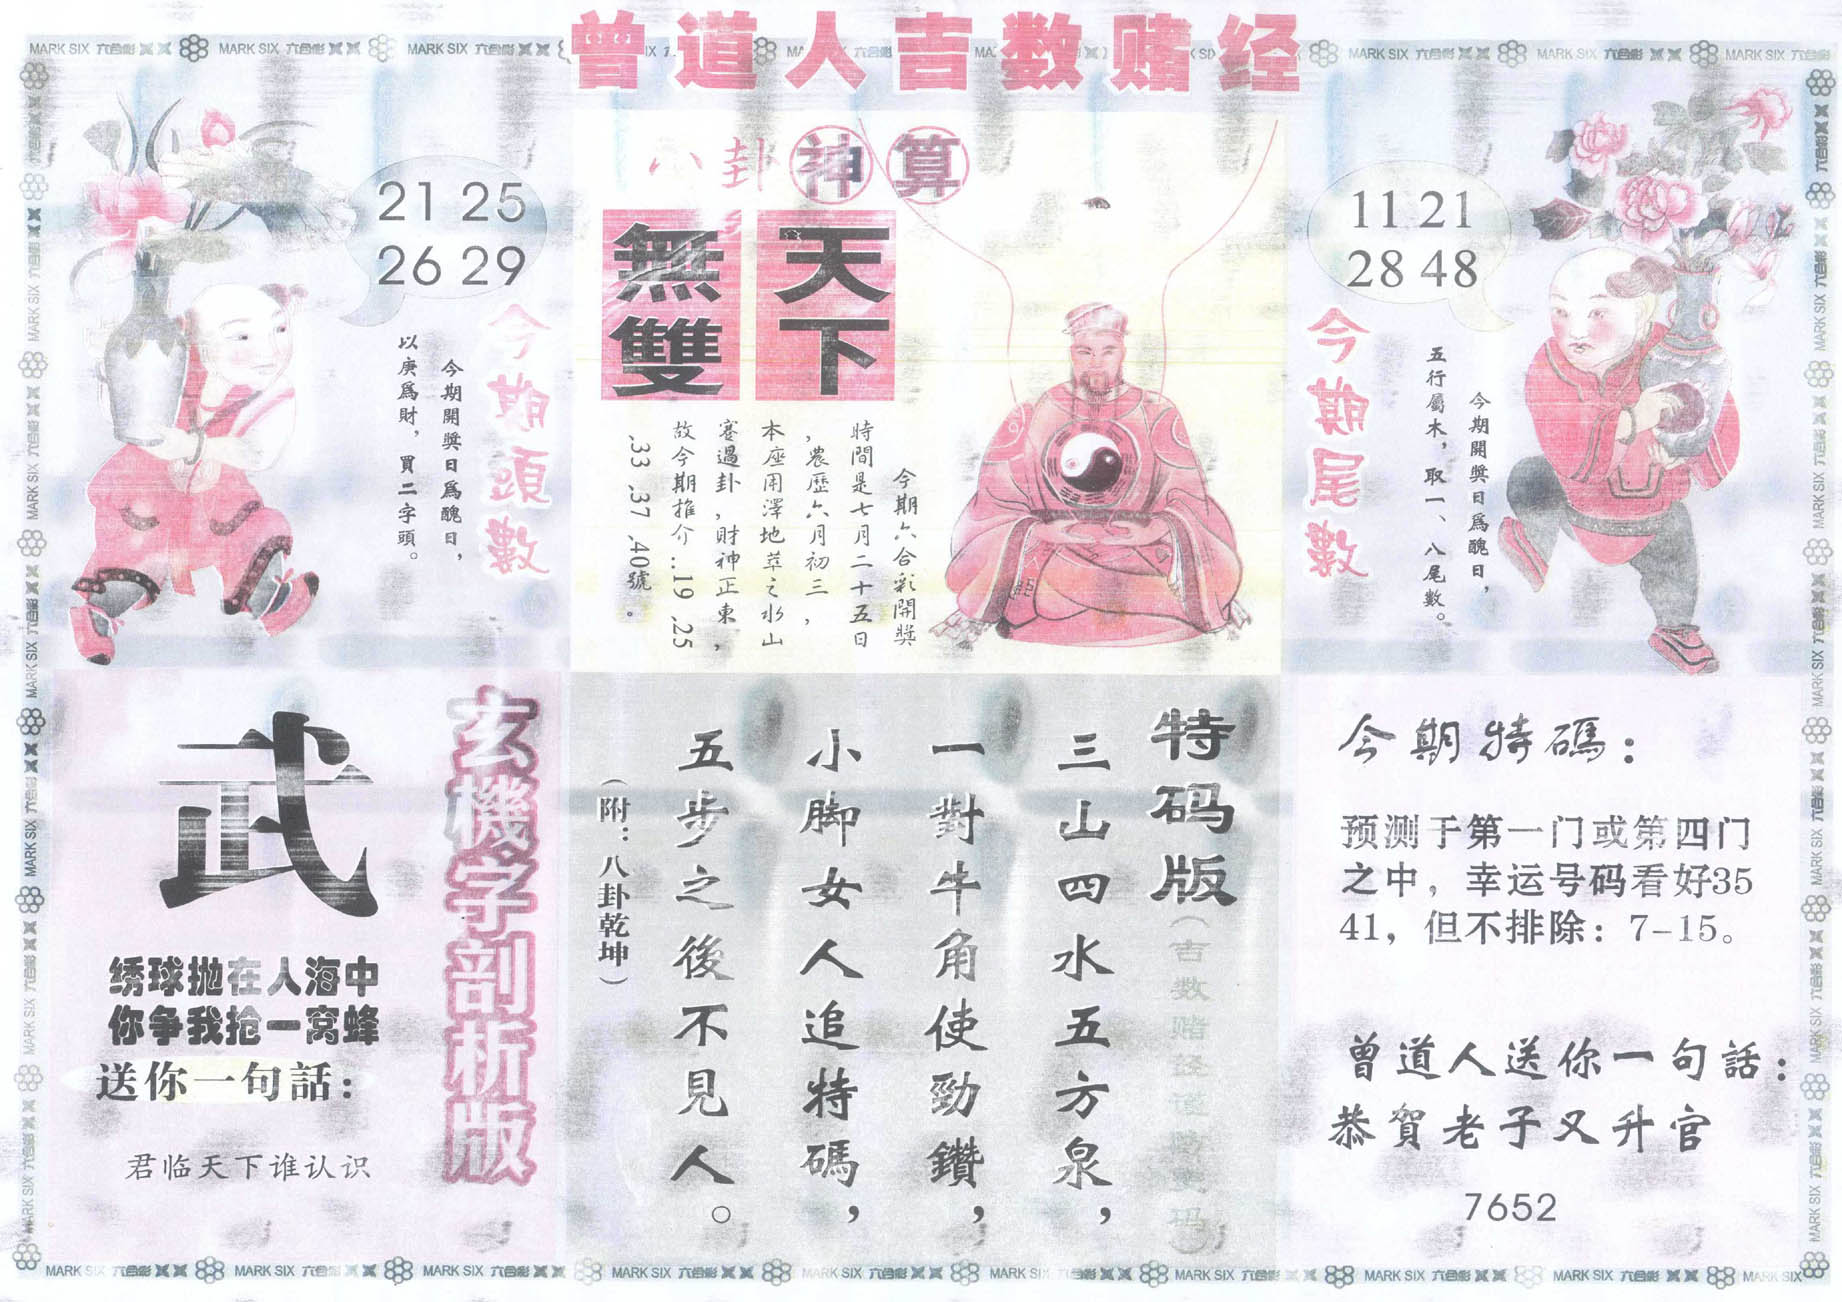 曾道人吉数赌经
MARK SIX 六合彩
八卦神算
天下
無雙
今期六合彩開獎
時間是七月二十五日
，農歷六月初三，
本座用澤地萃之水山
蹇過卦，財神正東，
故今期推介..19 .25
.33 .37 .40號。
21 25
26 29
今期頭數
今期開獎日爲醜日，
以庚爲財，買二字頭。
11 21
28 48
今期尾數
今期開獎日爲醜日，
五行屬木，取一、八尾數。
玄機字剖析版
武
绣球抛在人海中
你争我抢一窝蜂
送你一句話：
君临天下谁认识
特码版
三山四水五方泉，
一對牛角使勁鑽，
小脚女人追特碼，
五步之後不見人。
（附：八卦乾坤）
今期特碼：
预测于第一门或第四门
之中，幸运号码看好35
41，但不排除：7-15。
曾道人送你一句話：
恭賀老子又升官
7652